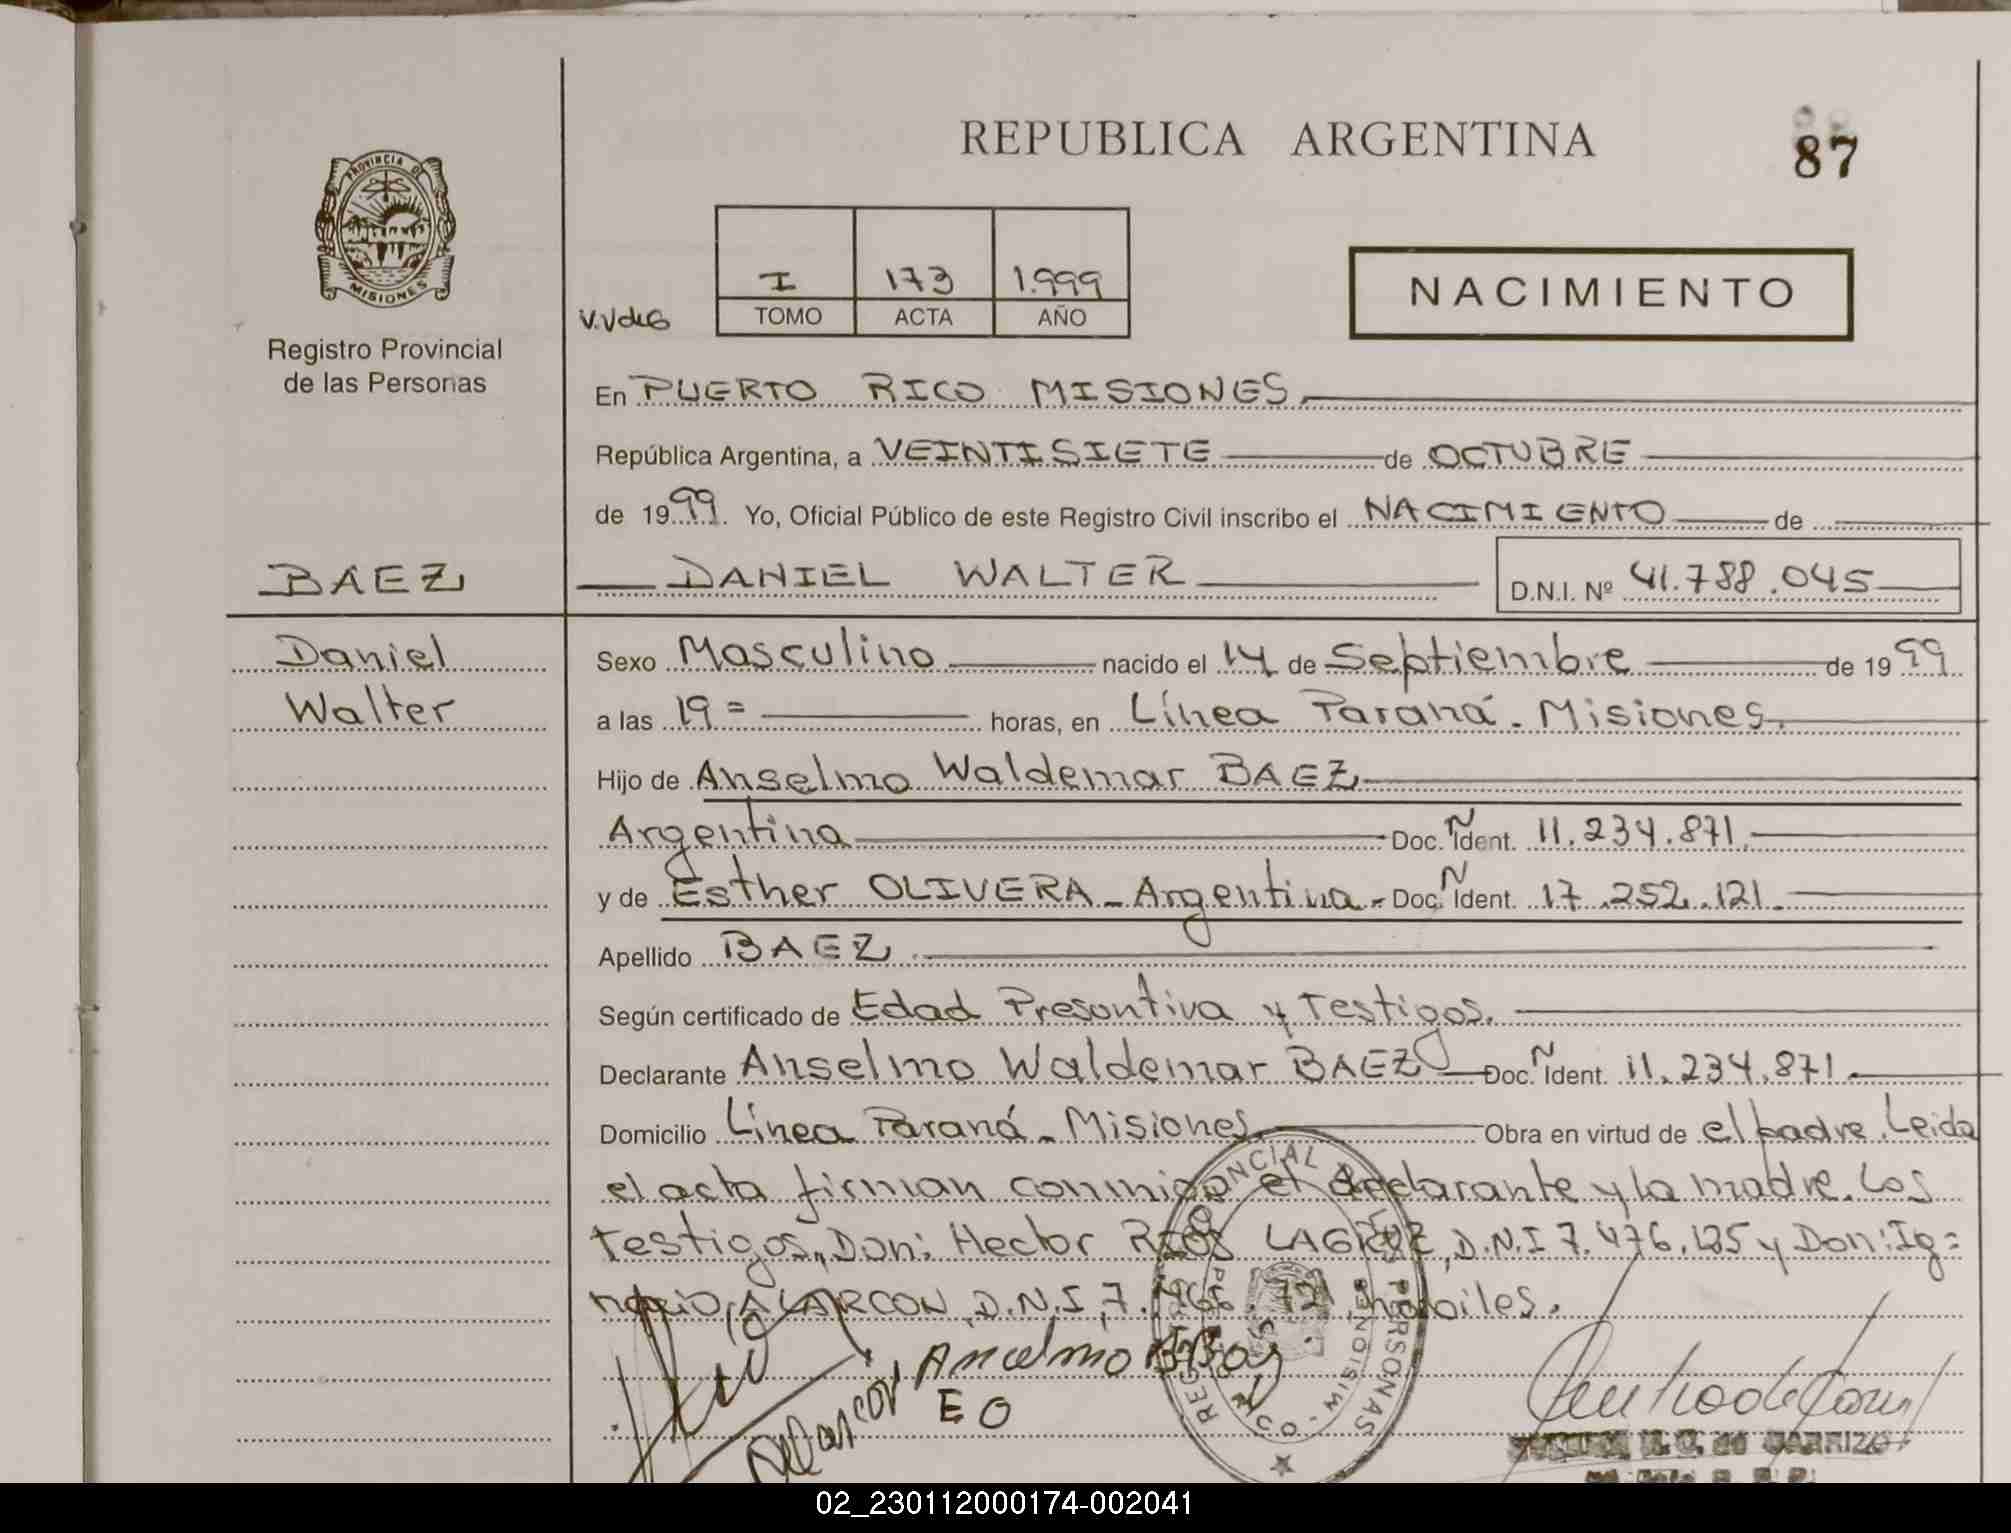 REPUBLICA ARGENTINA
87
PROVINCIA DE
MISIONES
Registro Provincial
de las Personas
I 173 1.999
TOMO ACTA AÑO
NACIMIENTO
En PUERTO RICO MISIONES.
República Argentina, a VEINTISIETE de OCTUBRE
de 1999. Yo, Oficial Público de este Registro Civil inscribo el NACIMIENTO de
BAEZ
DANIEL WALTER D.N.I. Nº 41.788.045
Daniel
Walter
Sexo Masculino nacido el 14 de Septiembre de 1999
a las 19= horas, en Línea Paraná. Misiones.
Hijo de Anselmo Waldemar BAEZ
Argentina Doc. Ñ Ident. 11.234.871.
y de Esther OLIVERA - Argentina - Doc. N Ident. 17.252.121.
Apellido BAEZ.
Según certificado de Edad Presuntiva y Testigos.
Declarante Anselmo Waldemar BAEZ Doc. Ñ Ident. 11.234.871.
Domicilio Línea Paraná - Misiones. Obra en virtud de el padre. Leida
el acta firman conmigo el declarante y la madre. Los
Testigos, Don: Hector RIOS D.N.I 7.476.125 y Don: Ig=
nacio ALARCON, D.N.I, 7. habiles.
REGISTRO PROVINCIAL DE LAS PERSONAS
PUERTO RICO - MISIONES
Alarcon
Ancelmo
E O
02_230112000174-002041